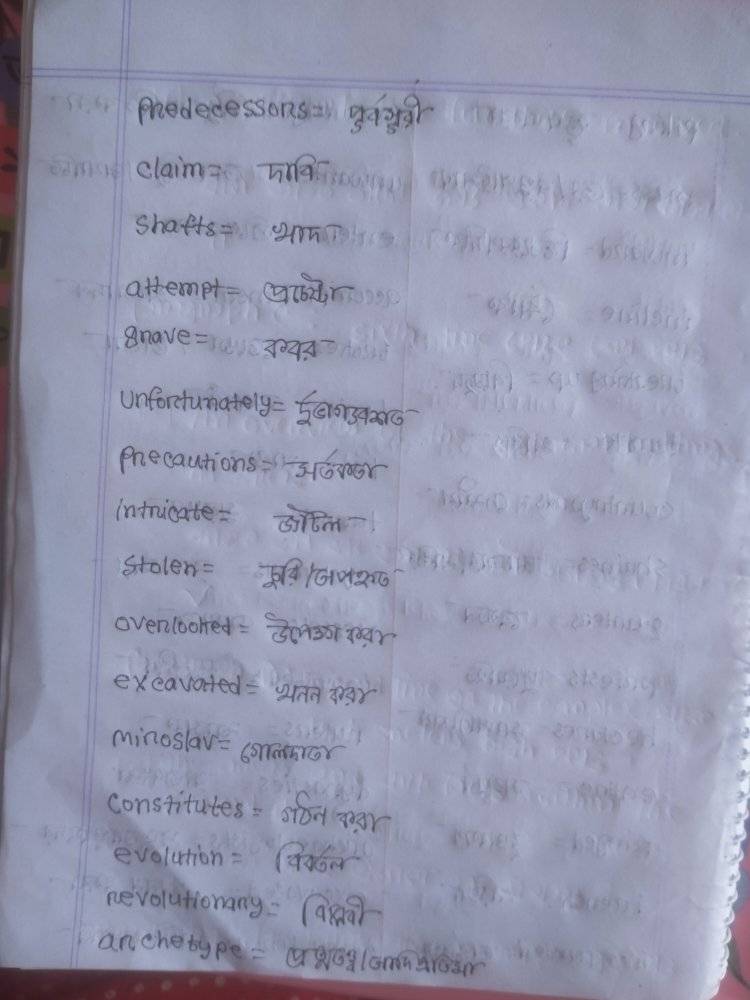 predecessors = পূর্বসুরী
claim = দাবি
shafts = খাদ
attempt = প্রচেষ্টা
grave = কবর
unfortunately = দুর্ভাগ্যবশত
precautions = সর্তকতা
intricate = জটিল
stolen = চুরি/অপহৃত
overlooked = উপেক্ষা করা
excavated = খনন করা
miroslav = গোলদাতা
constitutes = গঠন করা
evolution = বিবর্তন
revolutionary = বিপ্লবী
archetype = প্রত্নতত্ত্ব/আদিপ্রতিমা